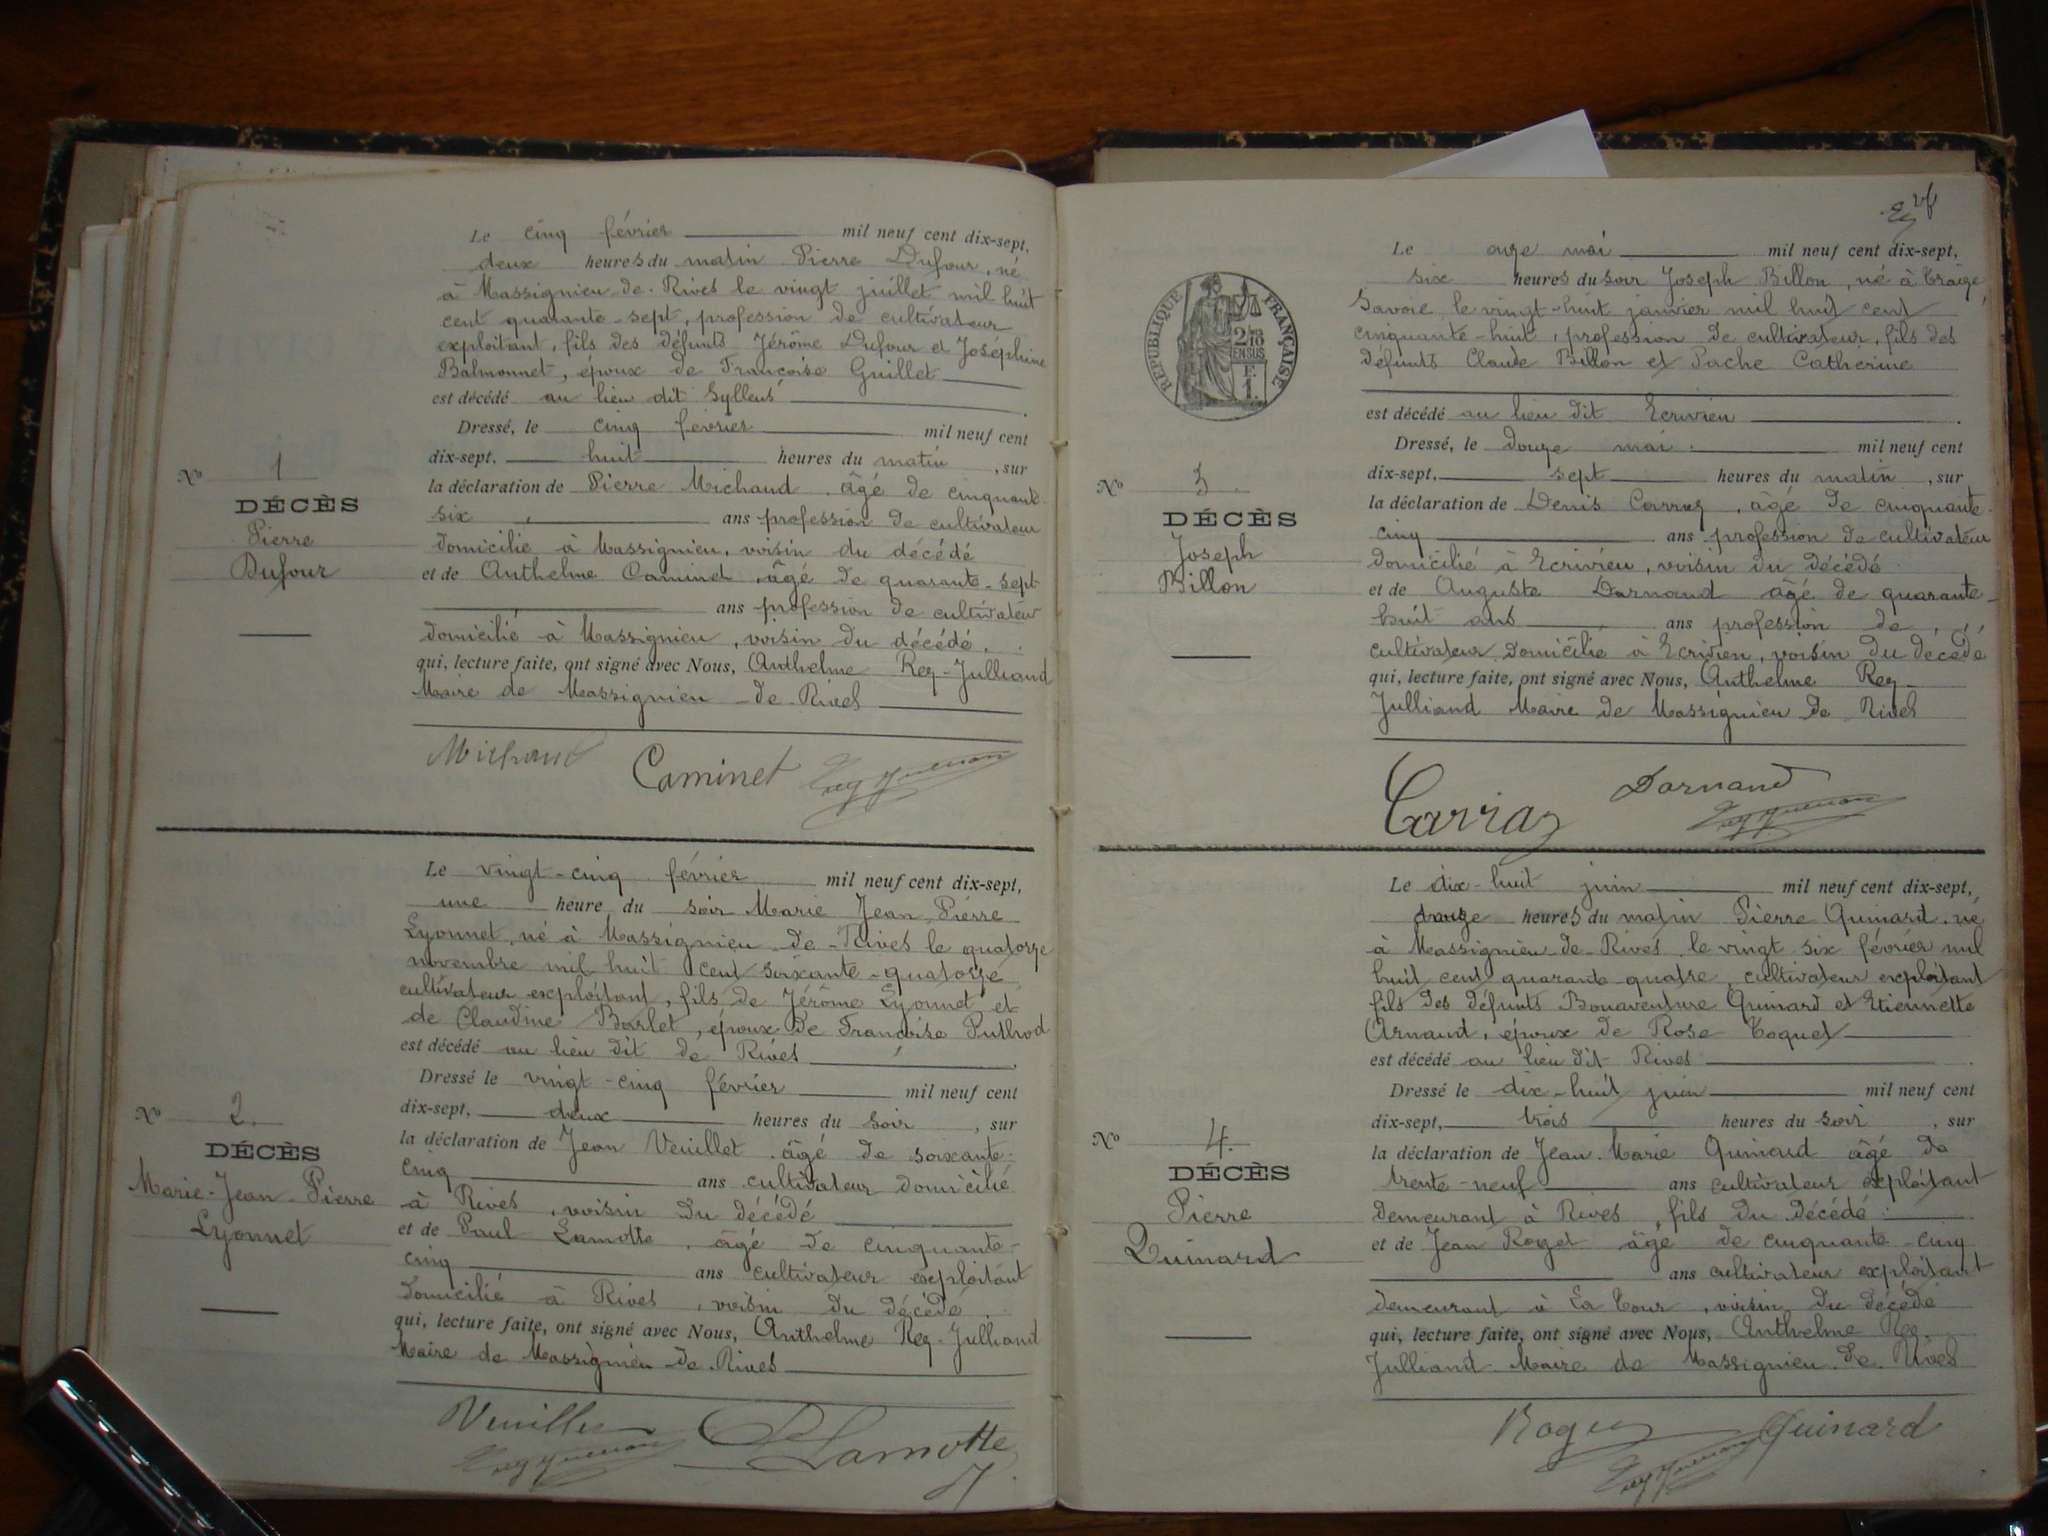 Le cinq février mil neuf cent dix-sept,
deux heures du matin Pierre Dufour, né
à Massignieu-de-Rives le vingt juillet mil huit
cent quarante-sept, profession de cultivateur
exploitant, fils des défunts Jérôme Dufour et Joséphine
Balmonnet, époux de Françoise Guillet
est décédé au lieu dit Sylleus
Dressé, le cinq février mil neuf cent
dix-sept, huit heures du matin, sur
la déclaration de Pierre Michaud, âgé de cinquante
six ans profession de cultivateur
domicilié à Massignieu, voisin du décédé
et de Anthelme Caminet, âgé de quarante-sept
ans profession de cultivateur
domicilié à Massignieu, voisin du décédé.
qui, lecture faite, ont signé avec Nous, Anthelme Rey-Julliand
Maire de Massignieu-de-Rives
Michaud Caminet
No 1
DÉCÈS
Pierre
Dufour
Le vingt-cinq février mil neuf cent dix-sept,
une heure du soir Marie Jean Pierre
Lyonnet, né à Massignieu-de-Rives le quatorze
novembre mil huit cent soixante-quatorze
cultivateur exploitant, fils de Jérôme Lyonnet et
de Claudine Barlet, époux de Françoise Puthod
est décédé au lieu dit de Rives
Dressé le vingt-cinq février mil neuf cent
dix-sept, deux heures du soir, sur
la déclaration de Jean Veuillet, âgé de soixante-
cinq ans cultivateur domicilié
à Rives, voisin du décédé
et de Paul Lamotte, âgé de cinquante-
cinq ans cultivateur exploitant
domicilié à Rives, voisin du décédé.
qui, lecture faite, ont signé avec Nous, Anthelme Rey-Julliand
Maire de Massignieu-de-Rives
Veuillet Lamotte
No 2.
DÉCÈS
Marie-Jean-Pierre
Lyonnet
RÉPUBLIQUE FRANÇAISE
2/10
EN SUS
F.
1.
Le onze mai mil neuf cent dix-sept,
six heures du soir Joseph Billon, né à Traize
Savoie le vingt-huit janvier mil huit cent
cinquante-huit, profession de cultivateur, fils des
défunts Claude Billon et Pache Catherine
est décédé au lieu dit Ecrivieu
Dressé, le douze mai mil neuf cent
dix-sept, sept heures du matin, sur
la déclaration de Denis Carraz, âgé de cinquante-
cinq ans profession de cultivateur
domicilié à Ecrivieu, voisin du décédé
et de Auguste Darnand âgé de quarante-
huit ans ans profession de
cultivateur domicilié à Ecrivieu, voisin du décédé
qui, lecture faite, ont signé avec Nous, Anthelme Rey-
Julliand Maire de Massignieu de Rives
Carraz Darnand
No 3.
DÉCÈS
Joseph
Billon
Le dix-huit juin mil neuf cent dix-sept,
heures du matin Pierre Quinard, né
à Massignieu-de-Rives le vingt six février mil
huit cent quarante quatre, cultivateur exploitant
fils des défunts Bonaventure Quinard et Etiennette
Arnaud, époux de Rose Toquet
est décédé au lieu dit Rives
Dressé le dix-huit juin mil neuf cent
dix-sept, trois heures du soir, sur
la déclaration de Jean-Marie Quinard âgé de
trente-neuf ans cultivateur exploitant
demeurant à Rives, fils du décédé
et de Jean Roget âgé de cinquante-cinq
ans cultivateur exploitant
demeurant à La Tour, voisin du décédé
qui, lecture faite, ont signé avec Nous, Anthelme Rey-
Julliand Maire de Massignieu-de-Rives
Quinard
No 4.
DÉCÈS
Pierre
Quinard